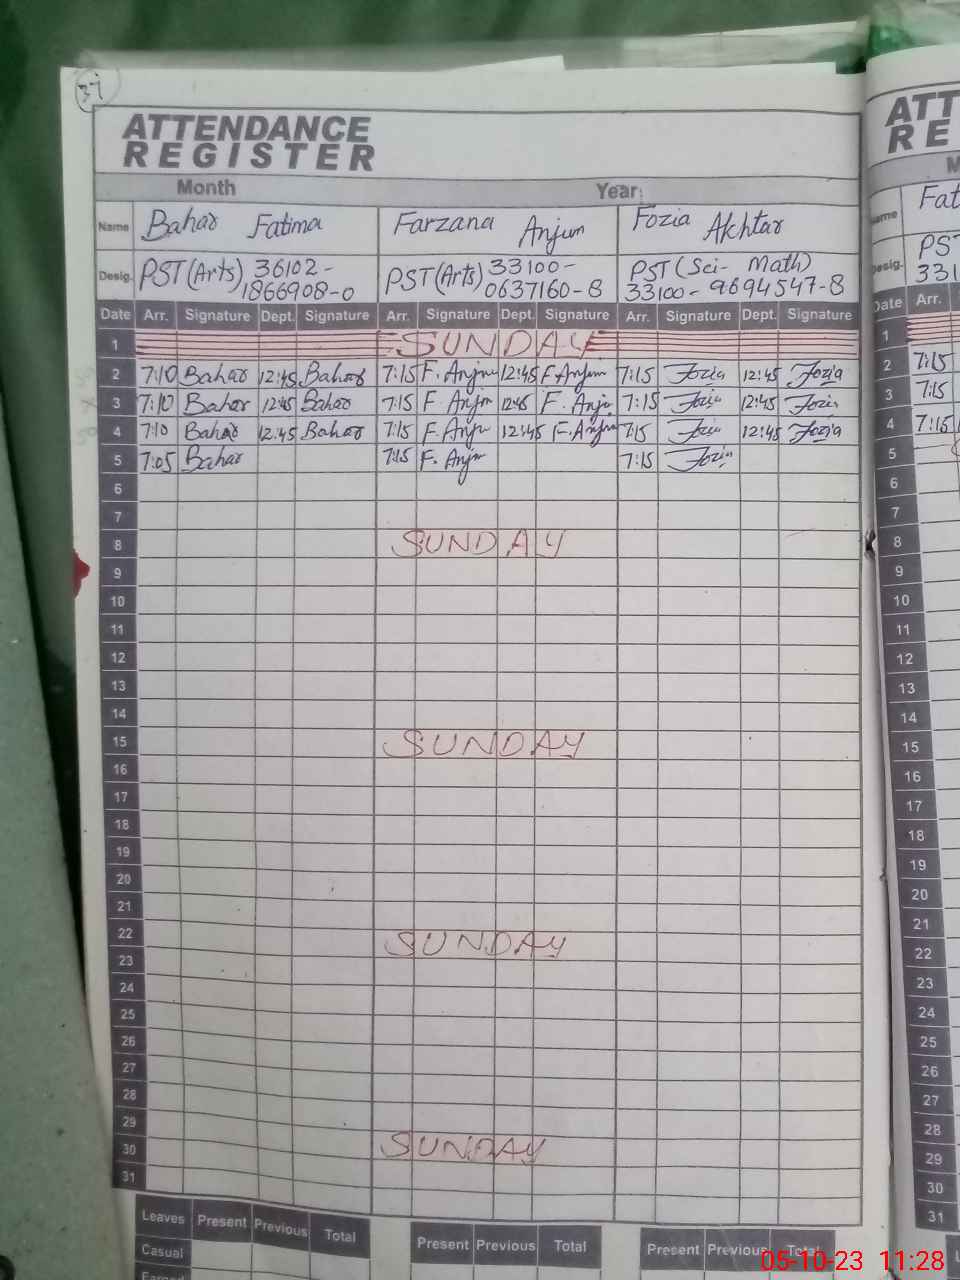 37
ATTENDANCE
REGISTER
Month Year:
Name Bahar Fatima Farzana Anjum Fozia Akhtar
Desig. PST (Arts) 36102-1866908-0 PST (Arts) 33100-0637160-8 PST (Sci- Math) 33100-9694547-8
Date Arr. Signature Dept. Signature Arr. Signature Dept. Signature Arr. Signature Dept. Signature
1 SUNDAY
2 7:10 Bahar 12:45 Bahar 7:15 F. Anjum 12:45 F. Anjum 7:15 Fozia 12:45 Fozia
3 7:10 Bahar 12:45 Bahar 7:15 F. Anjm 12:45 F. Anju 7:15 Fozia 12:45 Fozia
4 7:10 Bahar 12:45 Bahar 7:15 F. Anju 12:45 F. Anjum 7:15 Fozia 12:45 Fozia
5 7:05 Bahar 7:15 F. Anjm 7:15 Fozia
6
7
8 SUNDAY
9
10
11
12
13
14
15 SUNDAY
16
17
18
19
20
21
22 SUNDAY
23
24
25
26
27
28
29 SUNDAY
30
31
Leaves Present Previous Total Present Previous Total Present Previous Total
Casual
ATT
RE
M
Name Fat
Desig. PST
331
Date Arr.
1
2 7:15
3 7:15
4 7:15
5
6
7
8
9
10
11
12
13
14
15
16
17
18
19
20
21
22
23
24
25
26
27
28
29
30
31
05-10-23 11:28